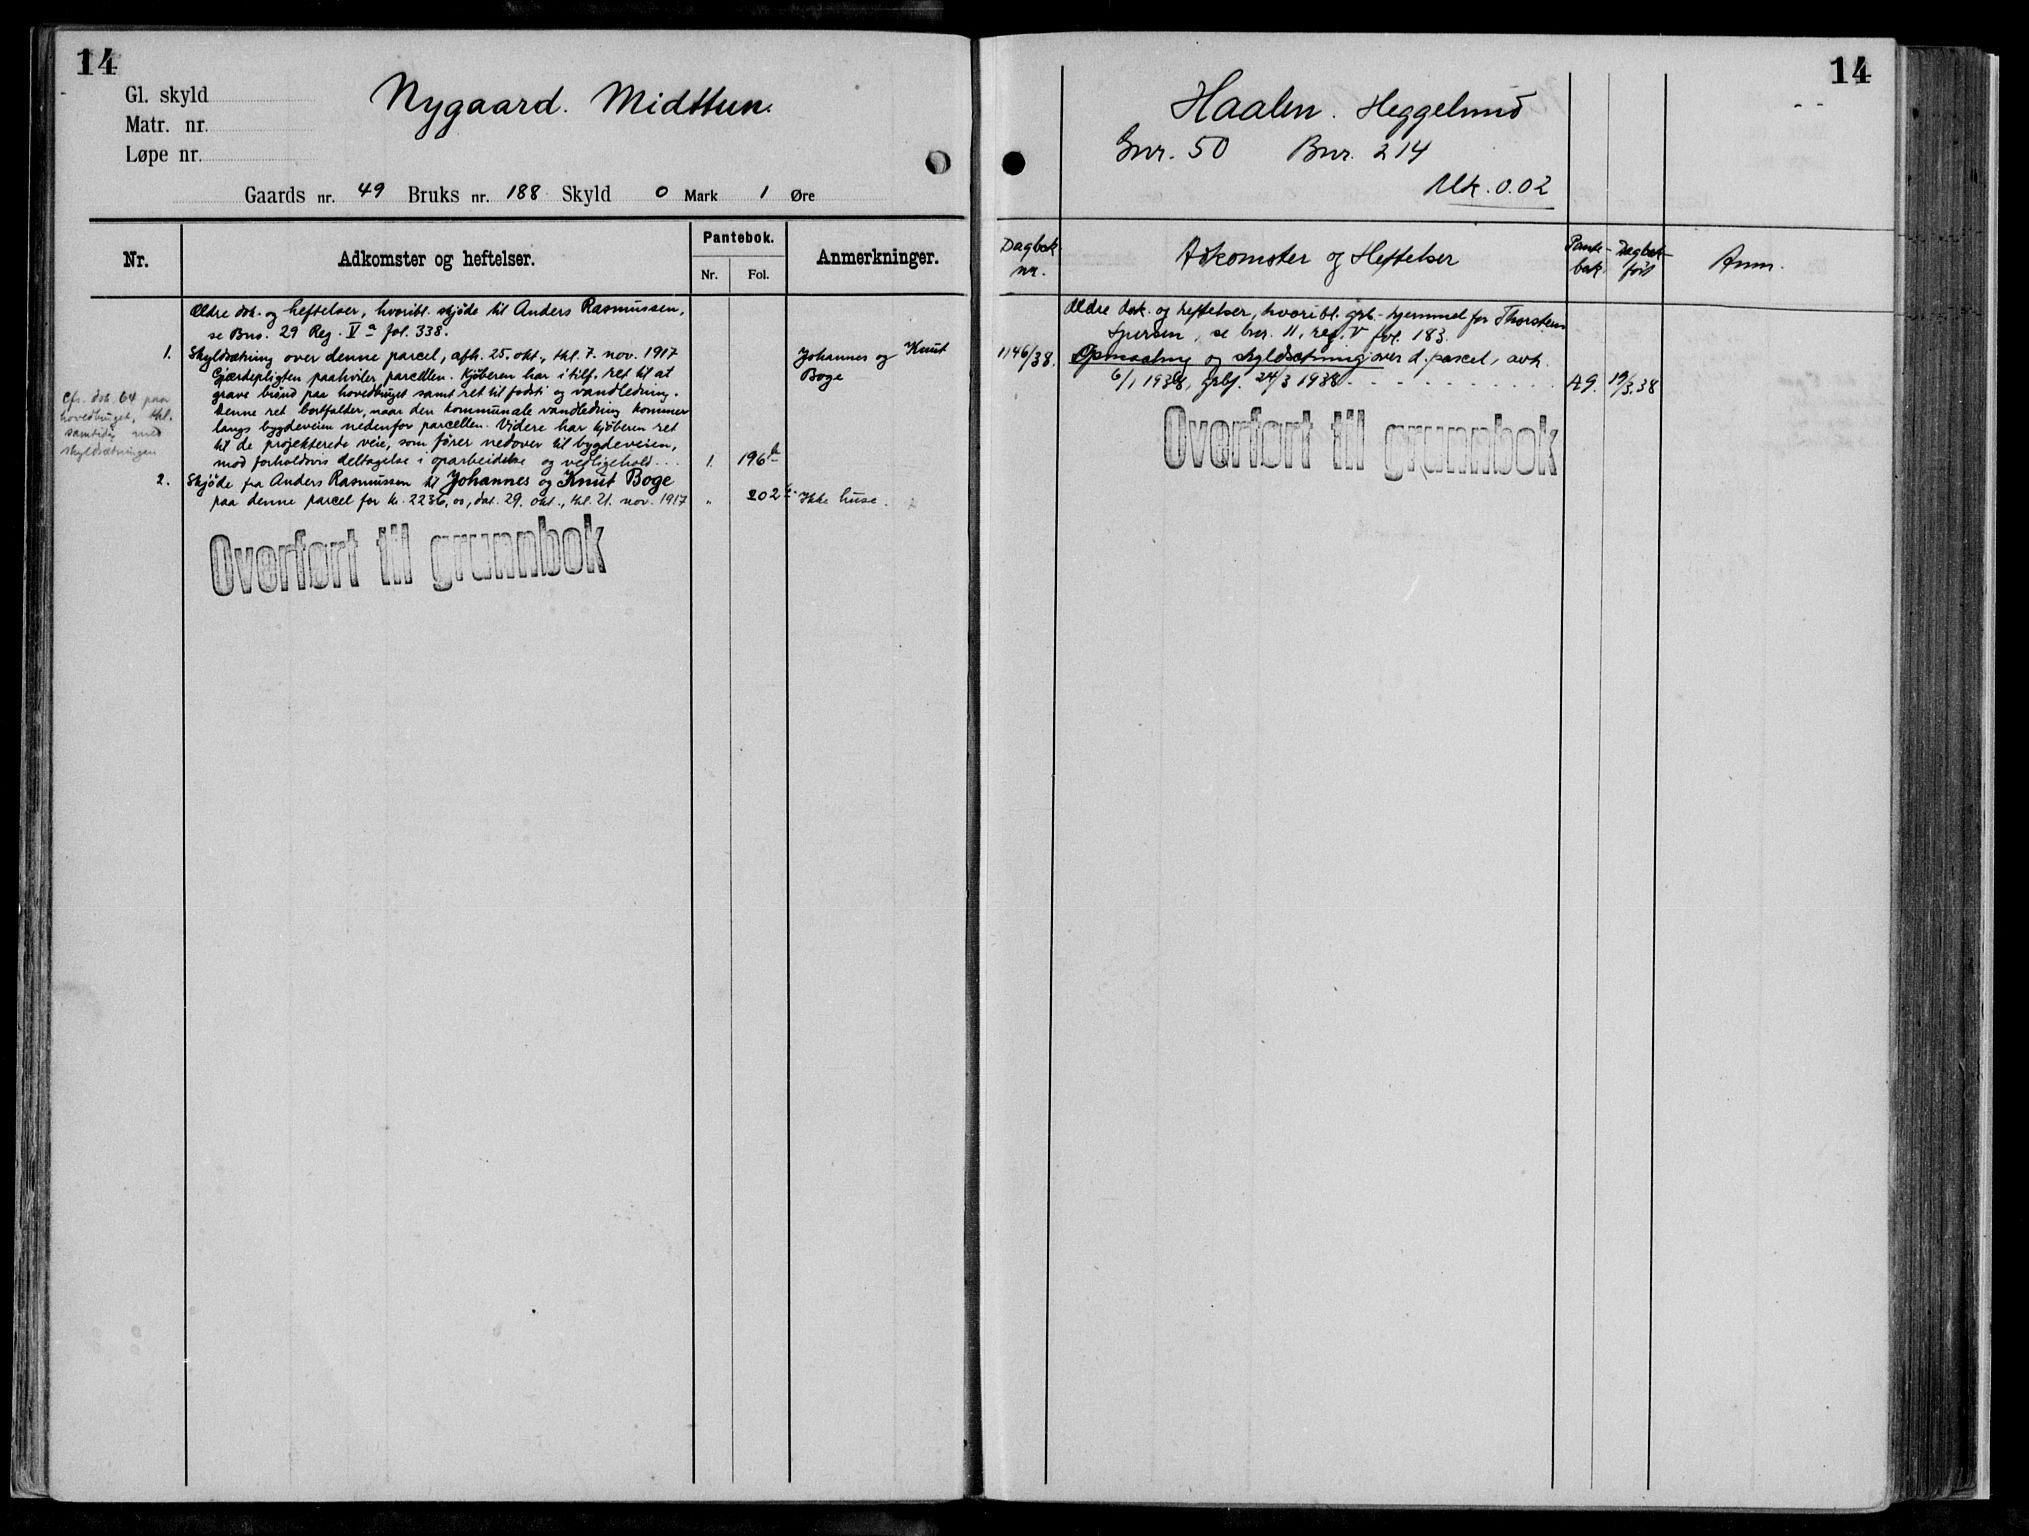 14
Gl. skyld
Matr. nr.
Løpe nr.
Nygaard. Midttun.
Gaards nr. 49 Bruks nr. 188 Skyld 0 Mark 1 Øre
Nr.
Adkomster og heftelser.
Pantebok.
Nr. Fol.
Anmerkninger.
Ældre dok. og heftelser, hvoribl. skjøde til Anders Rasmussen,
se Bno. 29 Reg. V a fol. 338.
1. Skyldsætning over denne parcel, afh. 25. okt., thl. 7. nov. 1917
Gjærdepligten paahviler parcellen. Kjøberen har i tilf. ret til at
grave brønd paa hovedbruget samt ret til fodsti og vandledning.
Denne ret bortfalder, naar den kommunale vandledning kommer
langs bygdeveien nedenfor parcellen. Videre har kjøberen ret
til de projekterede veie, som fører nedover til bygdeveien,
mod forholdsvis deltagelse i oparbeidelse og vedligehold... 1. 196 b
Johannes og Knut
Boge
cfr. dok. 64 paa
hovedbruget, thl.
samtidig med
skyldsætningen
2. Skjøde fra Anders Rasmussen til Johannes og Knut Boge
paa denne parcel for kr. 2236,00, dat. 29. okt., thl. 21. nov. 1917 " 202 Ikke huse.
Overført til grunnbok
14
Haalen. Heggelund
Gnr. 50 Bnr. 214
Mk. 0.02
Dagbok
nr.
Adkomster og Heftelser
Pante-
bok.
Dagbok-
ført
Anm.
Ældre dok. og heftelser, hvoribl. grb.-hjemmel for Thorstein
se bnr. 11, reg. V fol. 183.
1146/38. Opmaaling og skyldsætning over d. parcel, avh.
6/1 1938, grbf. 24/3 1938 - - - - - - - - - - A9. 19/3.38
Overført til grunnbok